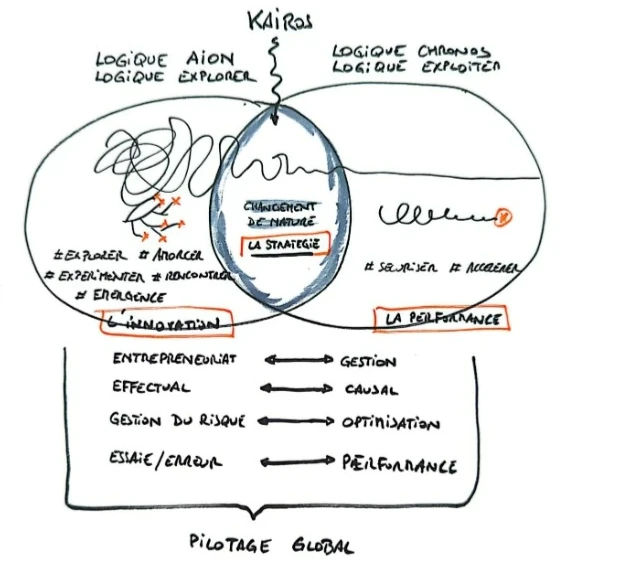 KAIROS
LOGIQUE AION
LOGIQUE EXPLORER
LOGIQUE CHRONOS
LOGIQUE EXPLOITER
CHANGEMENT
DE NATURE
LA STRATEGIE
#EXPLORER # AMORCER
# EXPERIMENTER # RENCONTRER
# EMERGENCE
L'INNOVATION
# SECURISER # ACCELERER
LA PERFORMANCE
ENTREPRENEURIAT GESTION
EFFECTUAL CAUSAL
GESTION DU RISQUE OPTIMISATION
ESSAIE/ERREUR PERFORMANCE
PILOTAGE GLOBAL